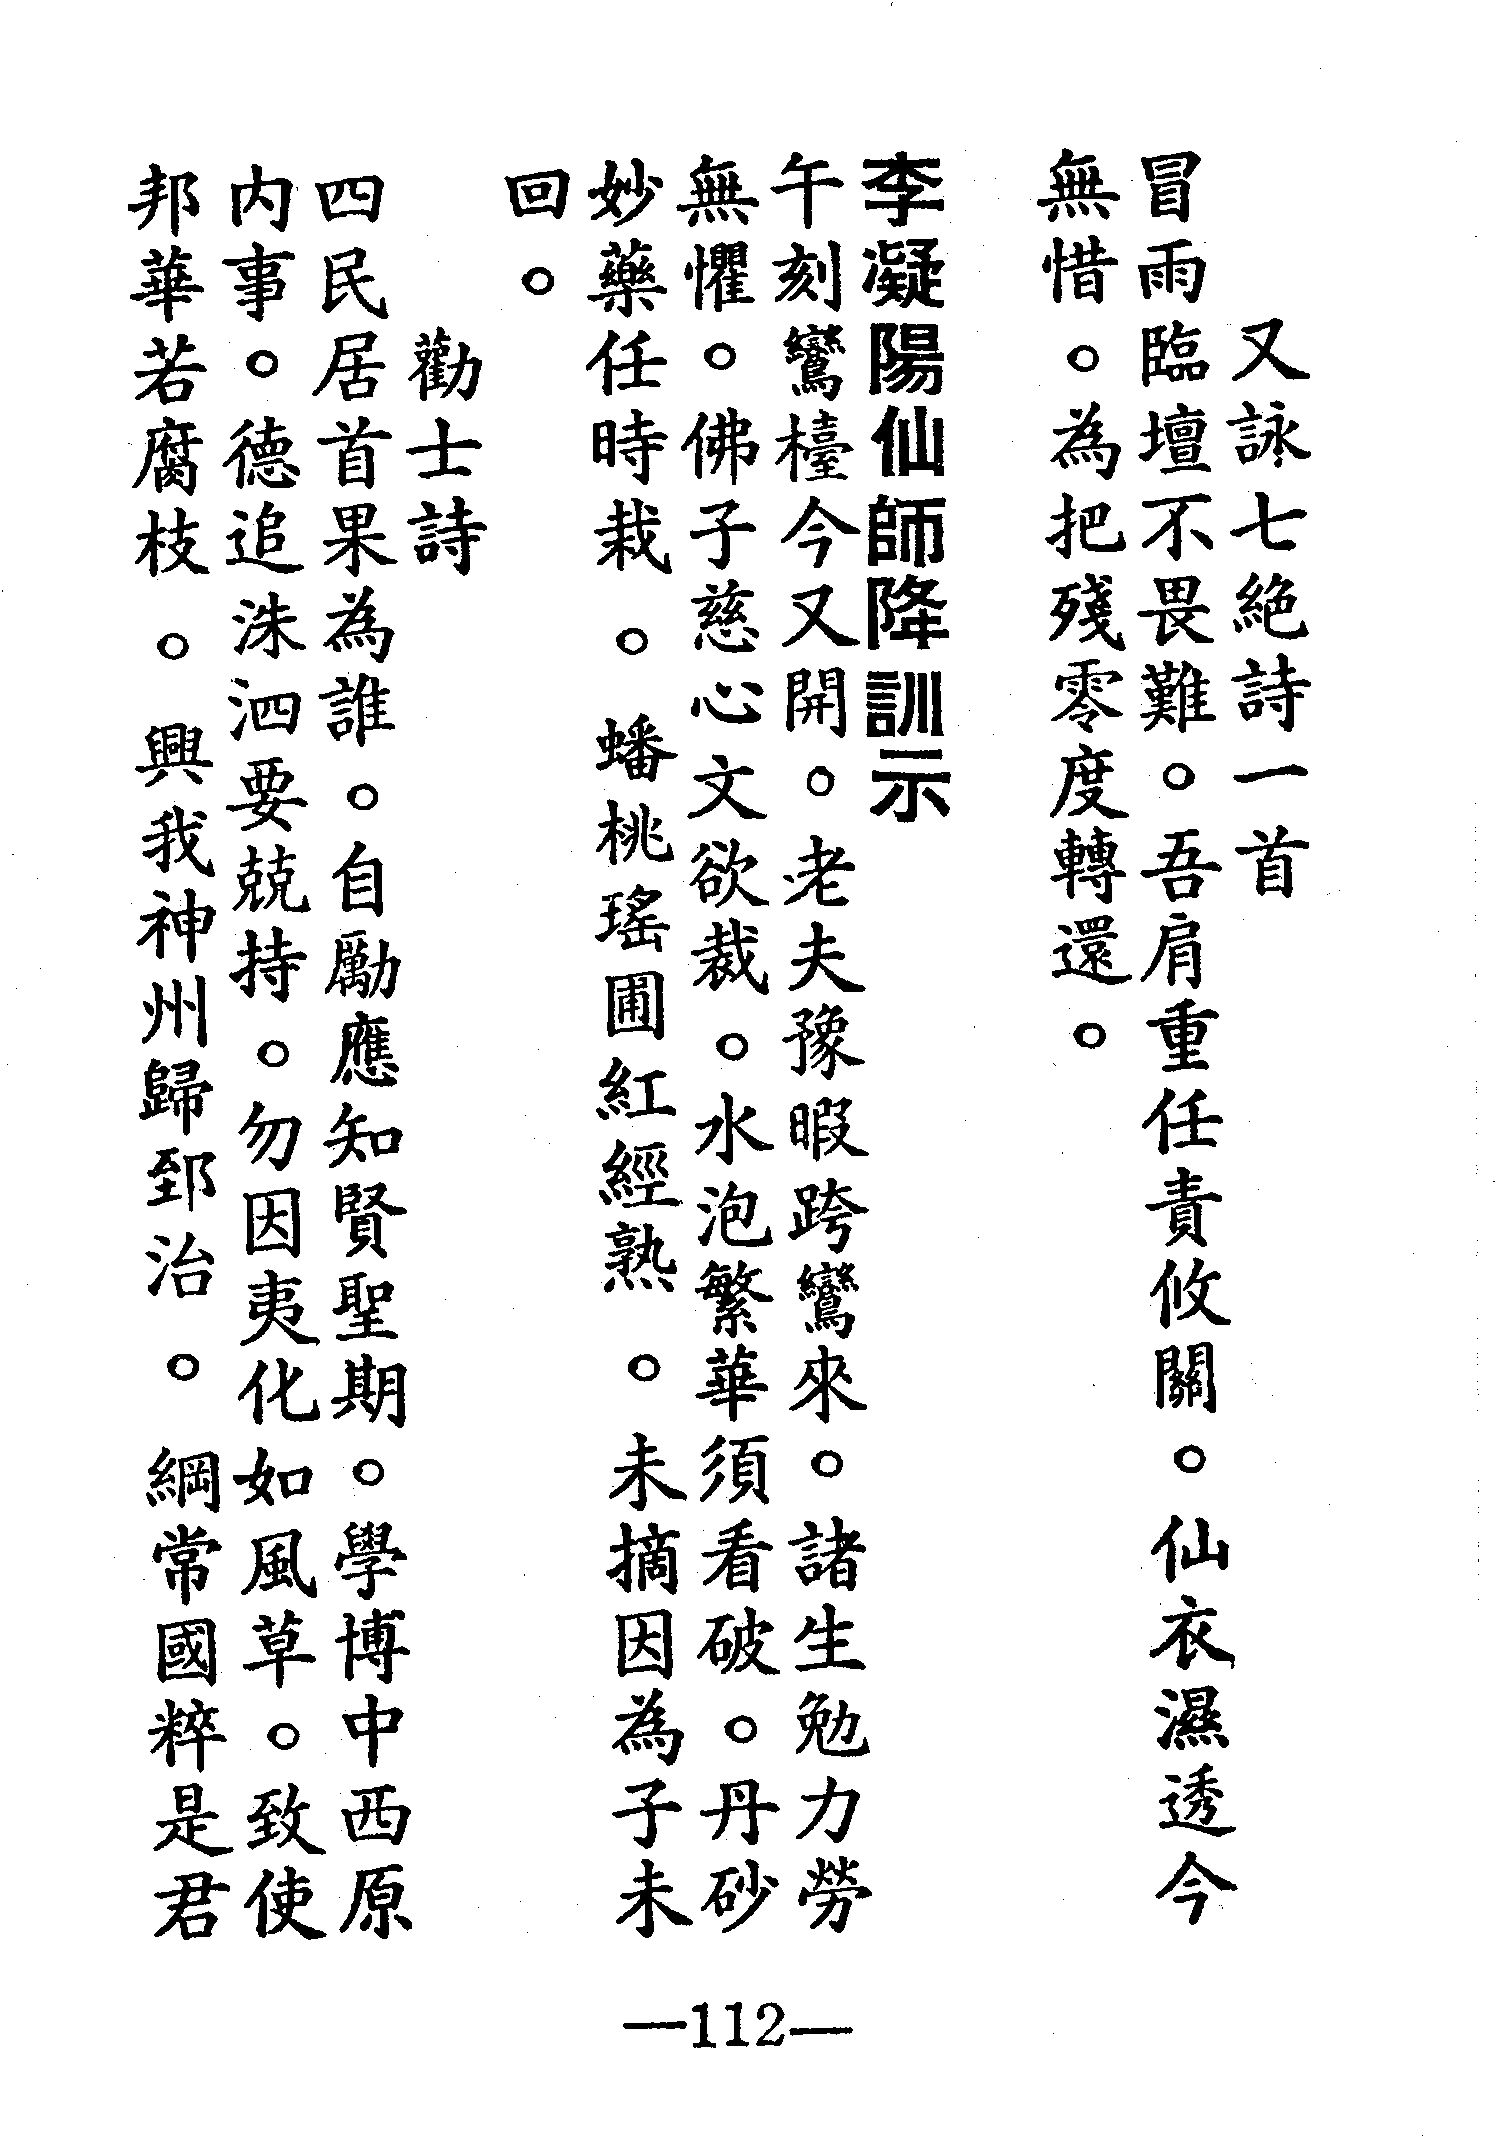 又詠七絕詩一首
冒雨臨壇不畏難。吾肩重任責攸關。仙衣濕透今
無惜。為把殘零度轉還。
李凝陽仙師降訓示
午刻鸞檯今又開。老夫豫暇跨鸞來。諸生勉力勞
無懼。佛子慈心文欲裁。水泡繁華須看破。丹砂
妙藥任時栽。蟠桃瑤圃紅經熟。未摘因為子未
回。
勸士詩
四民居首果為誰。自勵應知賢聖期。學博中西原
內事。德追洙泗要兢持。勿因夷化如風草。致使
邦華若腐枝。興我神州歸郅治。綱常國粹是君
—112—